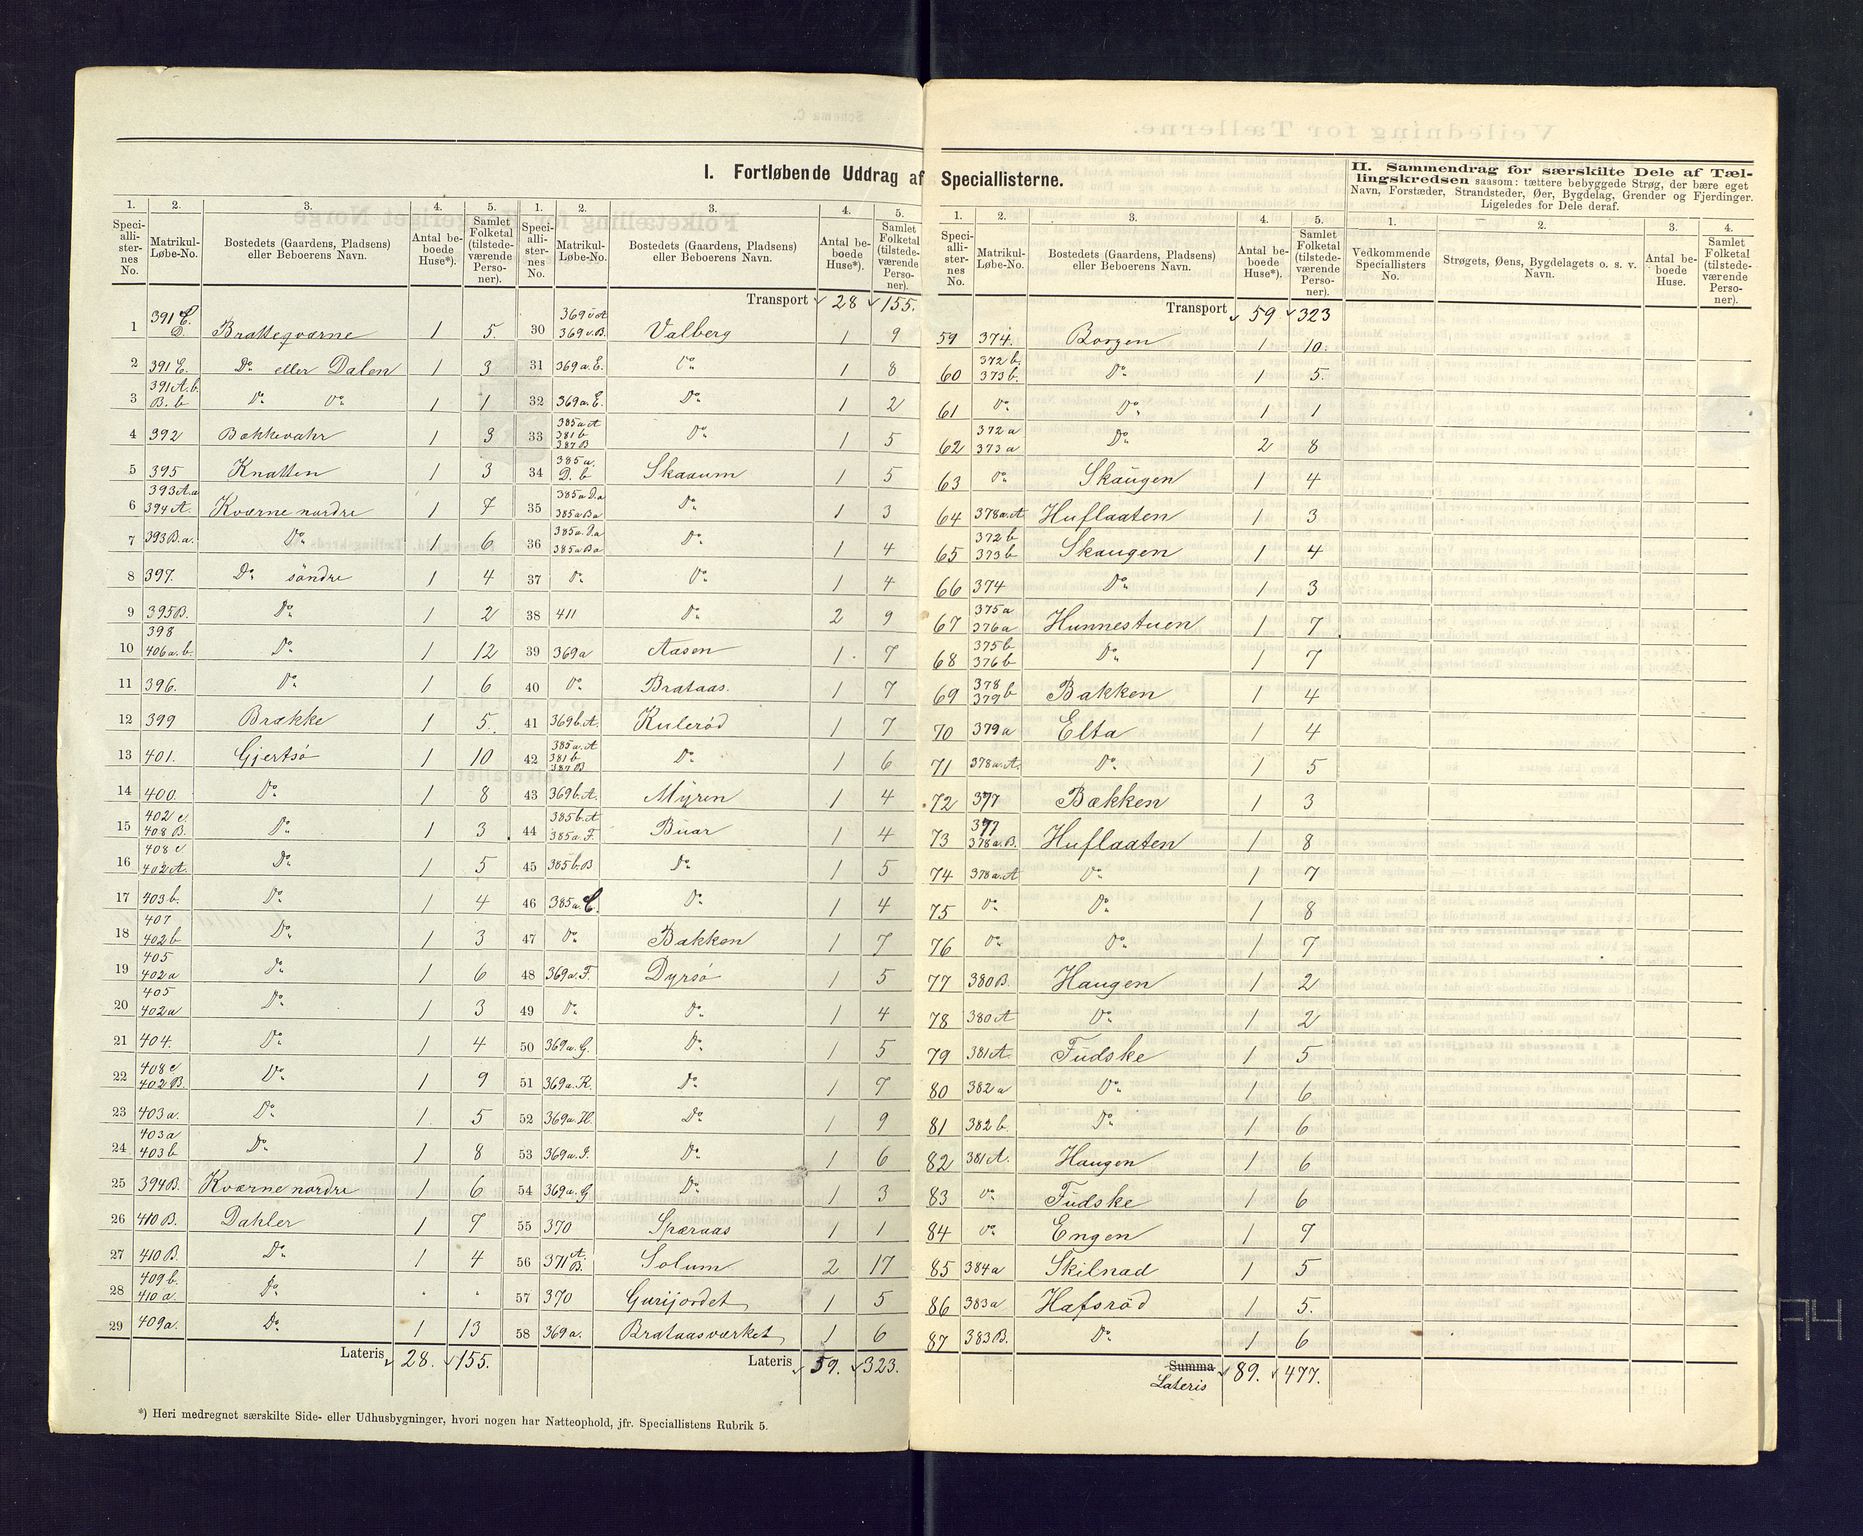 I. Fortløbende Uddrag af Speciallisterne.
1. 2. 3. 4. 5.
Speciallisternes No. Matrikul-Løbe-No. Bostedets (Gaardens, Pladsens) eller Beboerens Navn. Antal beboede Huse*). Samlet Folketal (tilstedeværende Personer).
1 391 C. D. Bratteqværne 1 5.
2 391 E. Do eller Dalen 1 3
3 391 A.b. B.b Do Do 1 1
4 392 Bakkevahr 1 3
5 395 Knatten 1 3
6 393 A.a 394 A. Kværne nordre 1 7
7 393 B.a. Do 1 6
8 397. Do söndre 1 4
9 395 B. Do 1 2
10 398 406 a.b. Do 1 12
11 396. Do 1 6
12 399 Brække 1 5.
13 401. Gjertsø 1 10
14 400. Do 1 8
15 402 c. 408 B. Do 1 3
16 408 c. 402 A. Do 1 5
17 403 b. Do 1 4
18 407 402 b Do 1 3
19 405 402 a Do 1 6
20 405 402 a Do 1 3
21 404. Do 1 4
22 408 c 402 B. Do 1 9
23 403 a. Do 1 5
24 403 a 403 b Do 1 8
25 394 B. Kværne nordre 1 6
26 410 B. Dahler 1 7
27 410 B. Do 1 4
28 409 b. 410 a. Do . .
29 409 a. Do 1 13
Lateris 28. 155.
*) Heri medregnet særskilte Side- eller Udhusbygninger, hvori nogen har Natteophold, jfr. Speciallistens Rubrik 5.
1. 2. 3. 4. 5.
Speciallisternes No. Matrikul-Løbe-No. Bostedets (Gaardens, Pladsens) eller Beboerens Navn. Antal beboede Huse*). Samlet Folketal (tilstedeværende Personer).
Transport 28 155.
30 369 v. A 369 v. B. Valberg 1 9
31 369 a. E. Do 1 8
32 369 a. E. Do 1 2
33 385 a. A 381 b 387 B Do 1 5
34 385 a. D. b Skaaum 1 5
35 385 a D. a 385 a B a Do 1 3
36 385 a. D. a 385 a B a Do 1 4
37 Do Do 1 4
38 411 Do 2 9
39 369 a Aasen 1 7
40 Do Brataas. 1 7
41 369 b. A. Kulerød 1 7
42 385 a. A 381 b 387 B Do 1 6
43 369 b. A. Myren 1 4
44 385 b. A 385 a. F. Buar 1 4
45 385 b. B Do 1 5
46 385 a. C. Do 1 4
47 Do Bakken 1 7
48 369 a. F. Dyrsø 1 5
49 Do Do 1 4
50 369 a. G. Do 1 5
51 369 a. K. Do 1 7
52 369 a. H. Do 1 9
53 369 a. I. Do 1 6
54 369 a. G Do 1 3
55 370 Spæraas 1 1
56 371 A. B. Solum 2 17
57 370 Gurijordet 1 5
58 369 a. Brataasværket 1 6
Lateris 59. 323.
1. 2. 3. 4. 5.
Speciallisternes No. Matrikul-Løbe-No. Bostedets (Gaardens, Pladsens) eller Beboerens Navn. Antal beboede Huse*). Samlet Folketal (tilstedeværende Personer).
Transport 59 323
59 374. Borgen 1 10.
60 372 b. 373 b. Do 1 5.
61 Do Do 1 1
62 372 a 373 a Do 2 8
63 Do Skaugen 1 4
64 378 a. A Huflaaten 1 3
65 372 b 373 b Skaugen 1 4
66 374 Do 1 3
67 375 a 376 a Hunnestuen 1 7
68 375 b 376 b Do 1 7
69 378 379 b Bakken 1 4
70 379 a Elta 1 4
71 378 a. A. Do 1 5
72 377 Bækken 1 3
73 377 378 a. B. Huflaaten 1 8
74 378 a. A Do 1 7
75 Do Do 1 8
76 Do Do 1 7
77 380 B. Haugen 1 2
78 380 A Do 1 2
79 381 A. Fudske 1 5
80 382 a Do 1 6
81 382 b Do 1 6
82 381 A. Haugen 1 6
83 Do Fudske 1 6
84 Do Engen 1 7
85 384 a Skilnad 1 5
86 383 a Hafsrød 1 5.
87 383 B. Do 1 6
Summa
Lateris 89. 477.
II. Sammendrag for særskilte Dele af Tællingskredsen saasom: tættere bebyggede Strøg, der bære eget Navn, Forstæder, Strandsteder, Øer, Bygdelag, Grender og Fjerdinger. Ligeledes for Dele deraf.
1. 2. 3. 4.
Vedkommende Speciallisters No. Strøgets, Øens, Bygdelagets o. s. v. Navn. Antal beboede Huse. Samlet Folketal (tilstedeværende Personer).